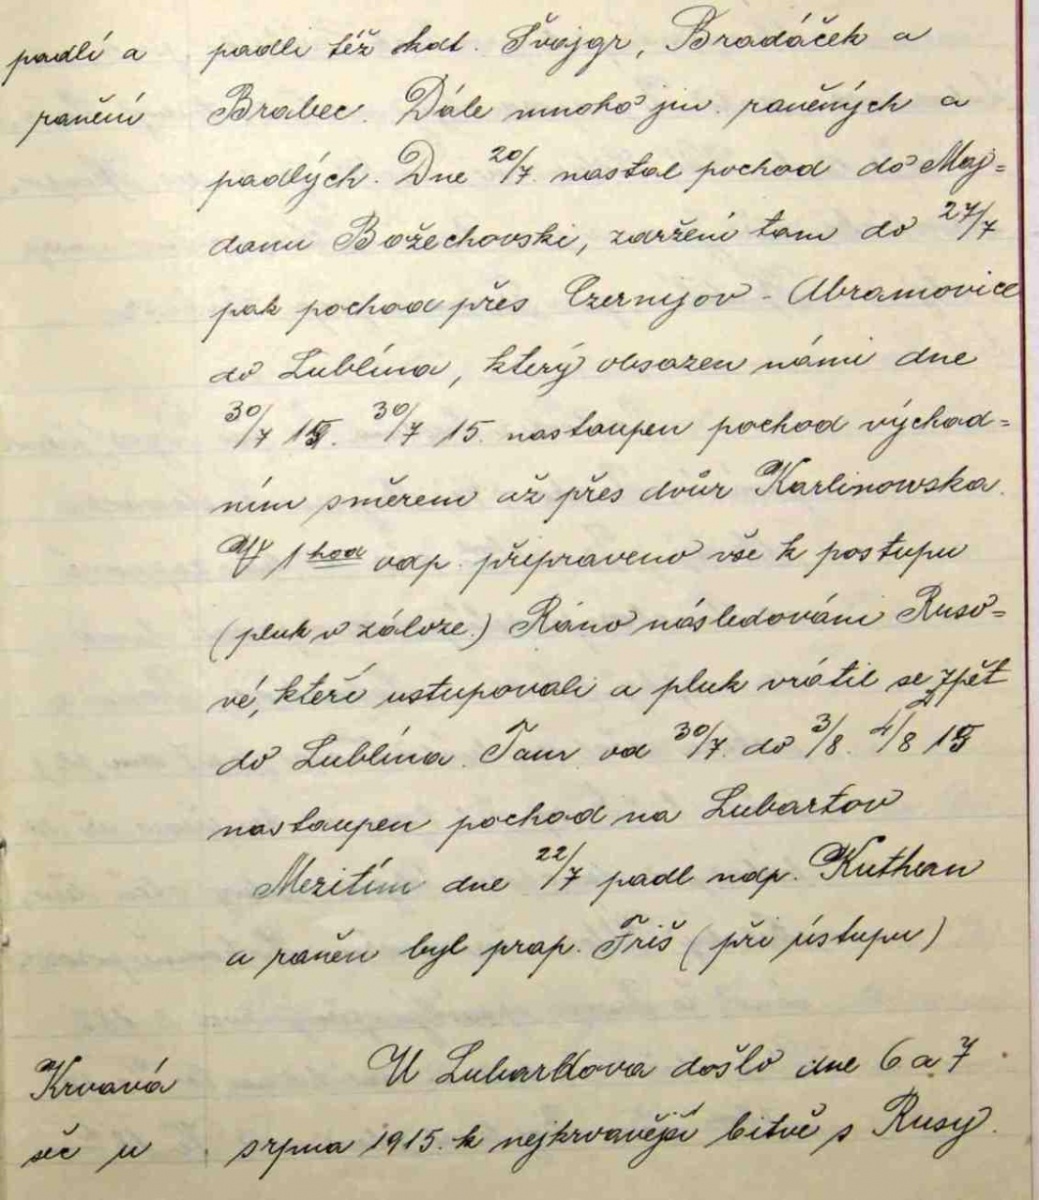 padlí a
ranění
padli též kdt. Švajgr, Bradáček a
Brabec. Dále mnoho jin. raněných a
padlých. Dne 20/7. nastal pochod do Maj=
danu Božechovski, zdržení tam do 27/7
pak pochod přes Czernijov - Abramovice
do Lublína, který obsazen námi dne
30/7 15. 30/7 15. nastoupen pochod východ=
ním směrem až přes dvůr Karlinowska.
V 1 hod odp. připraveno vše k postupu
(pluk v záloze.) Ráno následováni Ruso=
vé, kteří ustupovali a pluk vrátil se zpět
do Lublína. Tam od 30/7. do 3/8. 4/8 15
nastoupen pochod na Lubartov
Mezitím dne 22/7 padl ndp. Kuthan
a raněn byl prap. Friš (při ústupu)
Krvavá
seč u
U Lubartova došlo dne 6 a 7
srpna 1915. k nejkrvavější bitvě s Rusy.